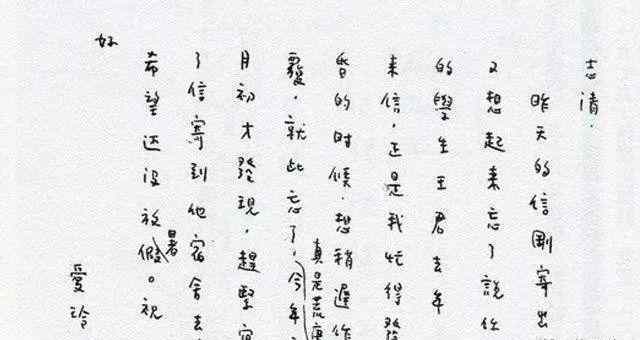 志清，
昨天的信剛寄出
又想起来忘了説你
的學生王君去年
来信，正是我忙得發
昏的时候，想稍遲作
覆，就此忘了，今年
真是荒
月初才發現，趕緊寫
了信寄到他宿舍去
希望还没放暑假。祝
好
愛玲